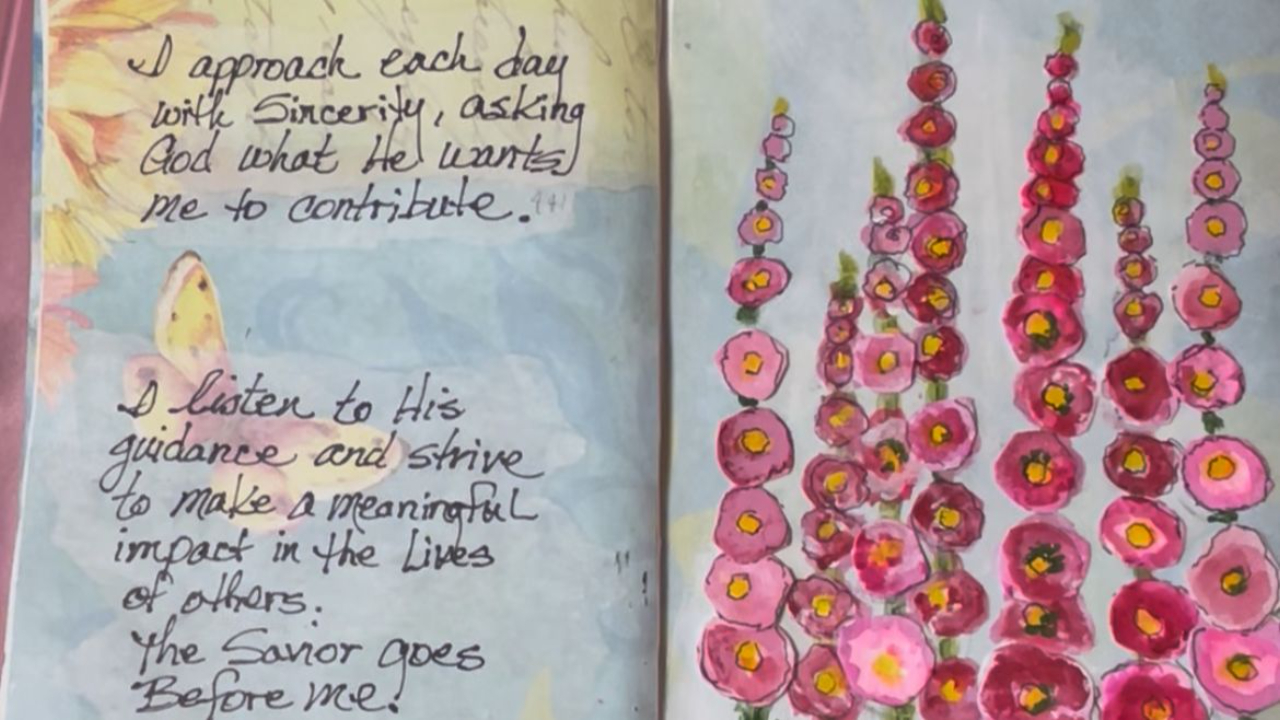 I approach each day
with Sincerity, asking
God what He wants
me to contribute.
I listen to His
guidance and strive
to make a meaningful
impact in the Lives
of others.
The Savior goes
Before me!